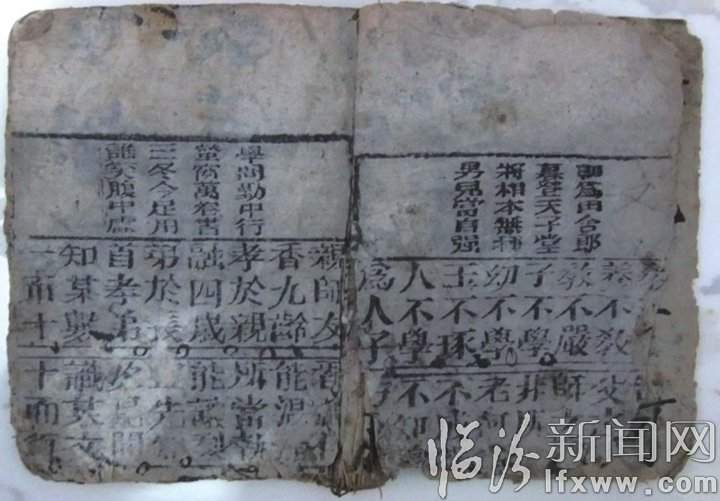 朝爲田舍郎
暮登天子堂
將相本無種
男兒當自强
養不教 父
教不嚴 師
子不學 非所
幼不學 老何
玉不琢 不成
人不學 不知
爲人子 方
學問勤中行
螢窗萬卷書
三冬今足用
誰笑腹中虛
親師友 習
香九齡 能溫
孝於親 所當執
融四歲 能讓梨
弟於長 宜先知
首孝弟 見聞
知某數 識某文
一而十 十而百
临汾新闻网
www.lfxww.com